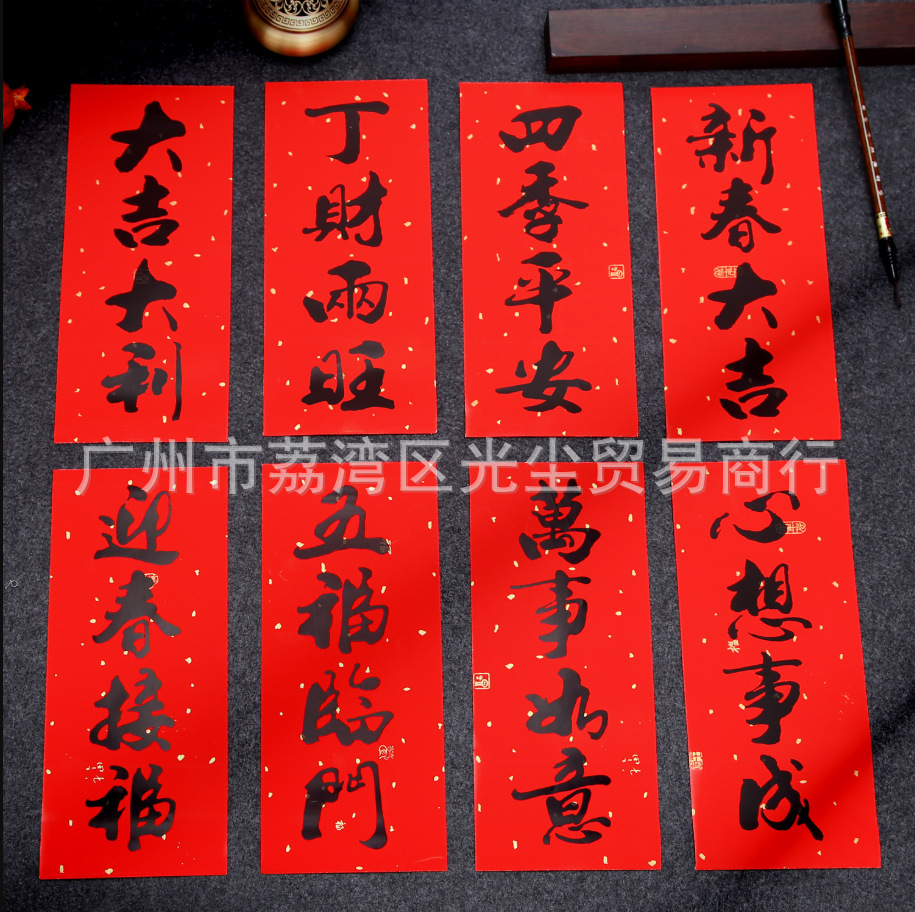 大吉大利
丁財兩旺
四季平安
新春大吉
广州市荔湾区光尘贸易商行
迎春接福
五福臨門
萬事如意
心想事成